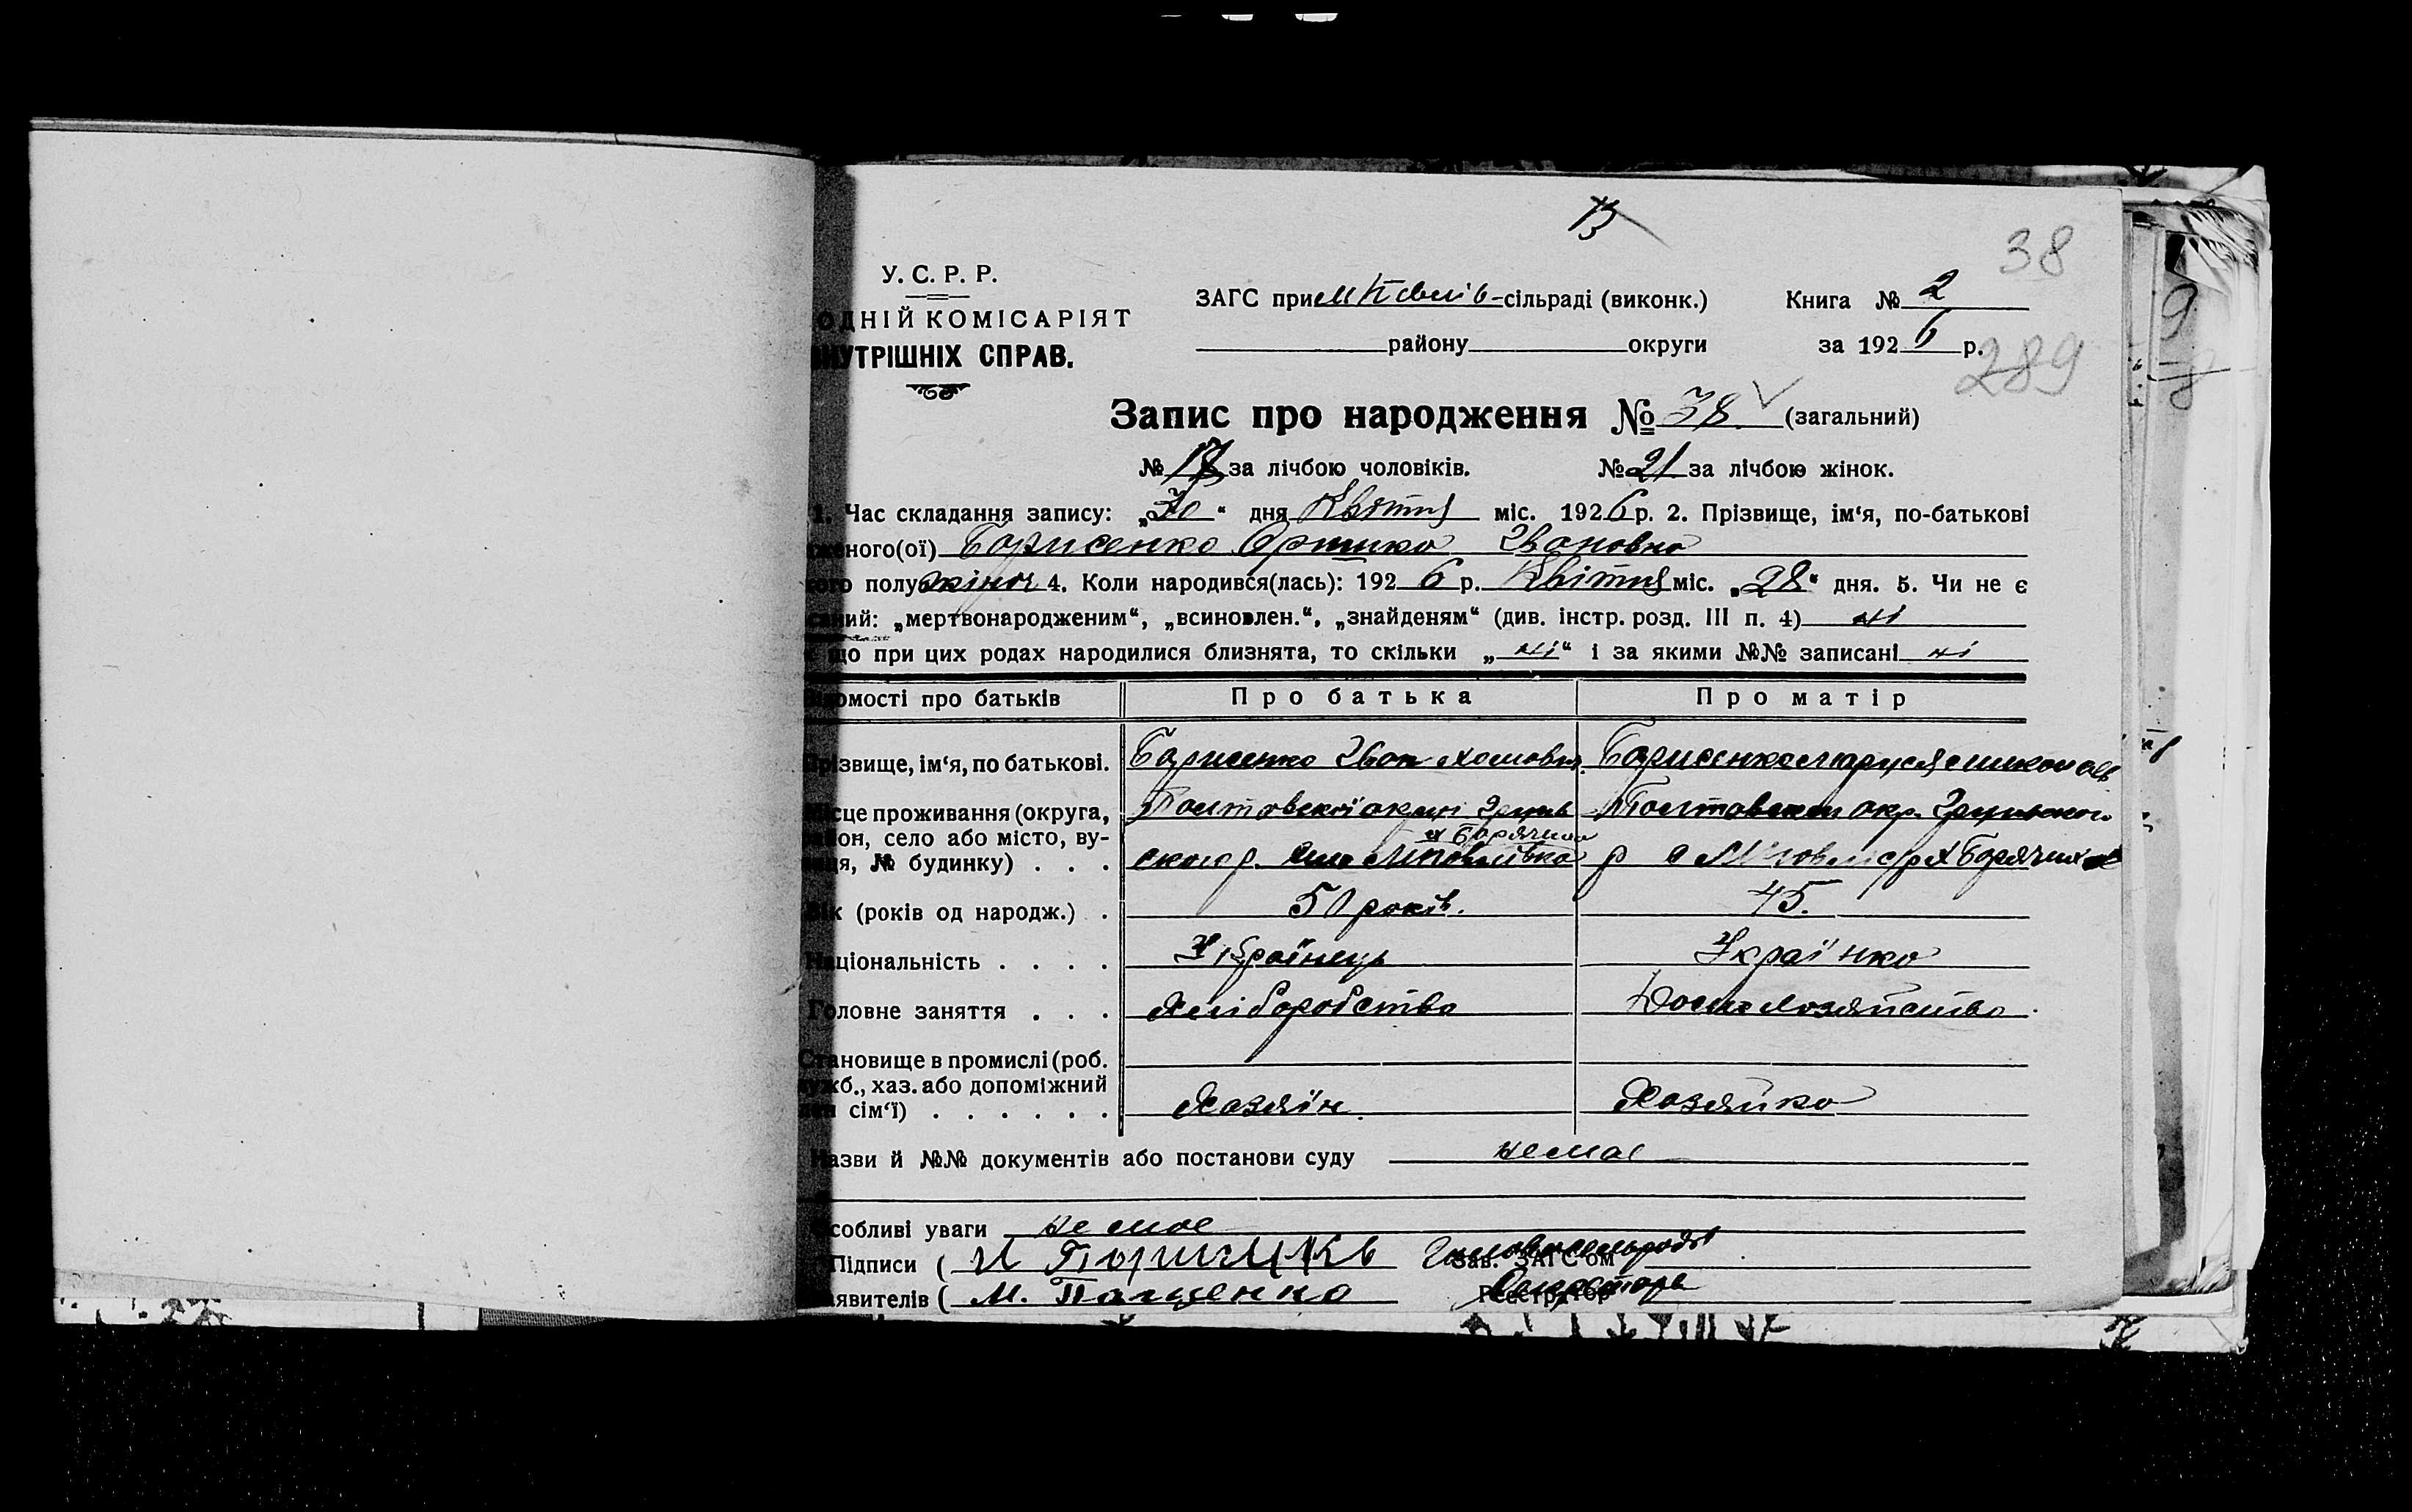 13
38
У. С. Р. Р.
ОДНІЙ КОМІСАРІЯТ
ВНУТРІШНІХ СПРАВ.
ЗАГС при сільраді (виконк.)
Книга № 2
району округи
за 1926 р.
289
Запис про народження № 38 (загальний)
№ 17 за лічбою чоловіків. № 21 за лічбою жінок.
1. Час складання запису: „30“ дня Квітня міс. 1926 р. 2. Прізвище, ім‘я, по-батькові
женого(ої) Борисенко Оришка Івановна
ого полу жіноч 4. Коли народився(лась): 1926 р. Квітня міс. „28“ дня. 5. Чи не є
саний: „мертвонародженим“, „всиновлен.“, „знайденям“ (див. інстр. розд. III п. 4) ні
що при цих родах народилися близнята, то скільки „ні“ і за якими №№ записані ні
домості про батьків Про батька Про матір
Прізвище, ім‘я, по батькові. Борисенко Іван Хомович Борисенко Маруся
Місце проживання (округа, Полтавської округ Полтавскои окр.
район, село або місто, ву-
х Борячина
лиця, № будинку) . . . ского р. р с х Борячин
Вік (років од народж.) . 50 років. 45.
Національність . . . . Українець Українка
Головне заняття . . . Хліборобство Домохозяйство
Становище в промислі (роб.
служб., хаз. або допоміжний
член сім‘ї) . . . . . . Хазяїн Хозяйка
Назви й №№ документів або постанови суду немає
Особливі уваги не має
Підписи ( Зав. ЗАГС‘ом Голова сельради
аявителів ( М. Пащенко Реєстратор